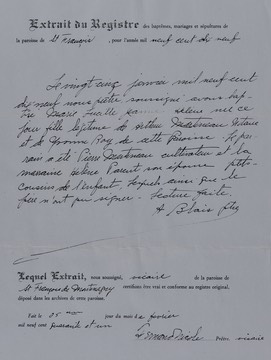 Extrait du Registre des baptêmes, mariages et sépultures de
la paroisse de St François, pour l'année mil neuf cent dix neuf
Le vingt cinq janvier mil neuf cent
dix neuf nous prêtre soussigné avons bap-
tisé Marie Lucille née ce
jour fille légitime de Arthur Martineau
et de Yvonne Roy de cette paroisse. Le par-
rain a été Pierre Martineau cultivateur et la
marraine Parent son épouse petits
cousins de l'enfant, lesquels ainsi que le
père n'ont pu signer. Lecture faite.
A Blais ptre
Lequel Extrait, nous soussigné, vicaire de la paroisse de
St François de Montmagny certifions être vrai et conforme au registre original,
déposé dans les archives de cette paroisse.
Fait le 25 ème jour du mois de février
mil neuf cent quarante et un
Prêtre vicaire